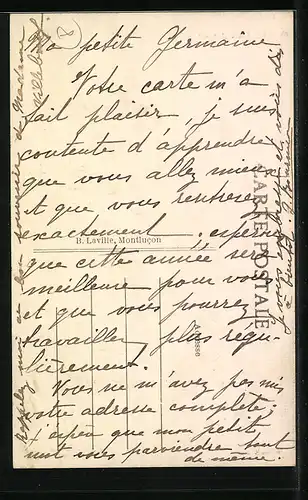 Ma petite Germaine
Votre carte m'a
fait plaisir, je suis
contente d'apprendre
que vous allez mieux
et que vous rentrerez
exactement. J'espère
que cette année sera
meilleure pour vous
et que vous pourrez
travailler plus régu-
lièrement.
Vous ne m'avez pas mis
votre adresse complète,
j'espère que mon petit
mot vous parviendra tout
de même.
B. Laville, Montluçon
CARTE POSTALE
Adresse
Rappelez-moi au bon souvenir de Madame